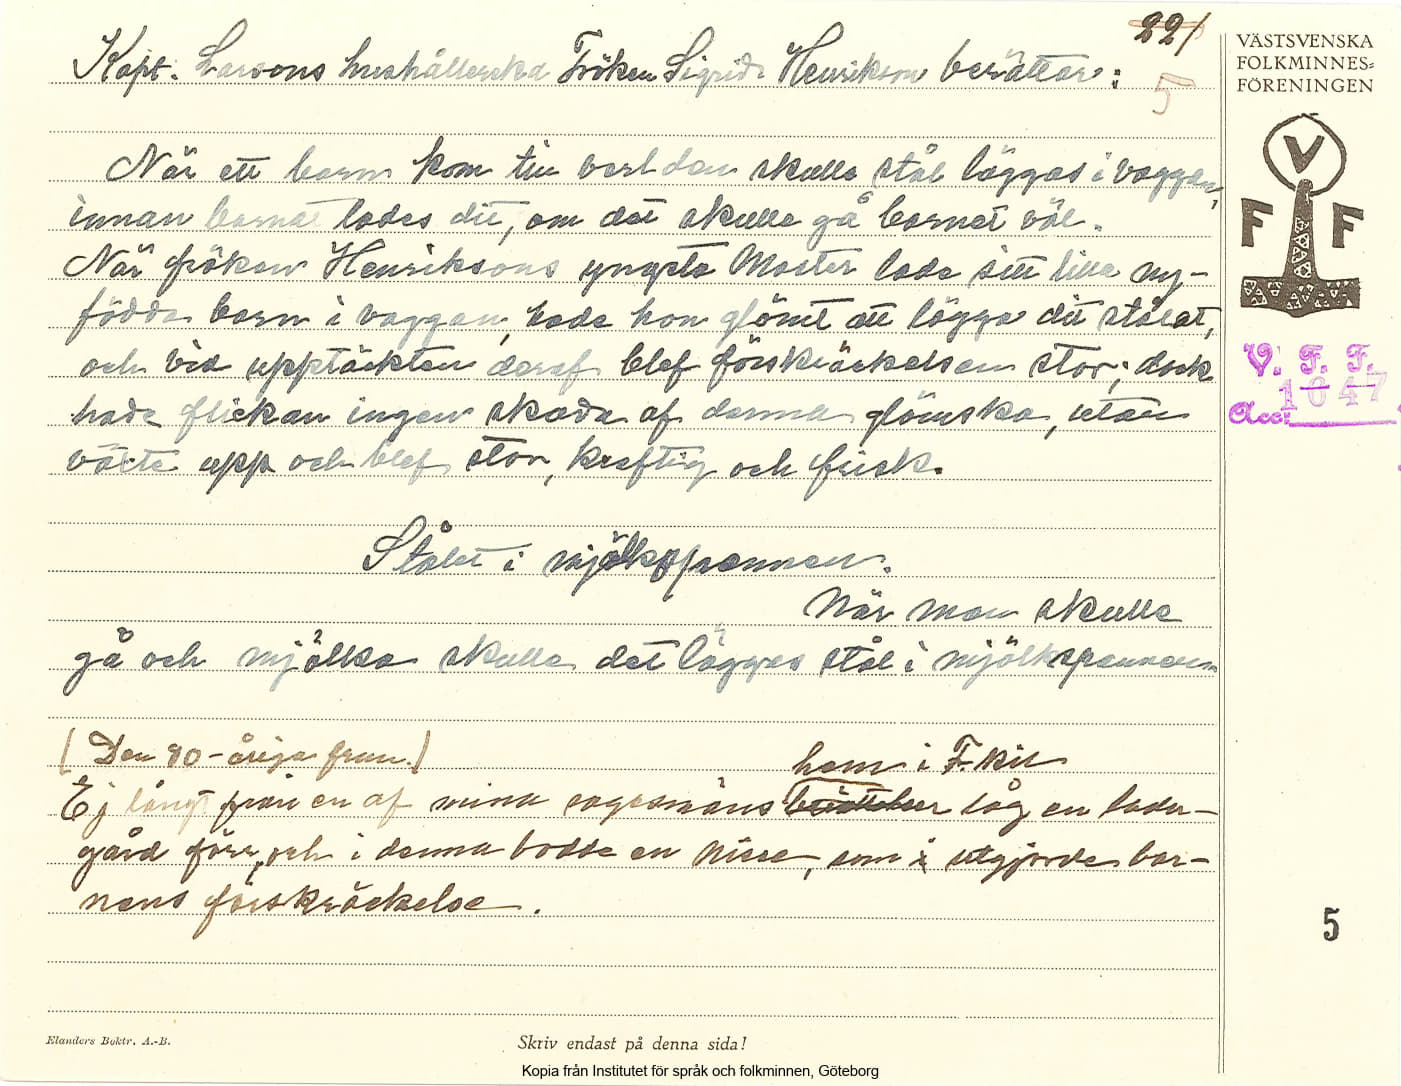 22/
5
Kapt. Larsons hushållerska Fröken Sigrid Henrikson berättar:
När ett barn kom till verlden skulle stål läggas i vaggan,
innan barnet lades dit, om det skulle gå barnet väl.
När fröken Henriksons yngsta Moster lade sitt lilla ny-
födda barn i vaggan, hade hon glömt att lägga dit stålet,
och vid upptäckten deraf blef förskräckelsen stor; dock
hade flickan ingen skada af denna glömska, utan
växte upp och blef stor, kraftig och frisk.
Stålet i mjölkspannen.
När man skulle
gå och mjölka skulle det läggas stål i mjölkspannen
(Den 80-åriga frun.)
hem i F. kil
Ej långt från en af mina sagesmäns låg en lader-
gård förr, och i denna bodde en Nisse, som utgjorde bar-
nens förskräckelse.
VÄSTSVENSKA
FOLKMINNES-
FÖRENINGEN
V
F F
V. F. F.
Acc: 1647
5
Elanders Boktr. A.-B.
Skriv endast på denna sida!
Kopia från Institutet för språk och folkminnen, Göteborg